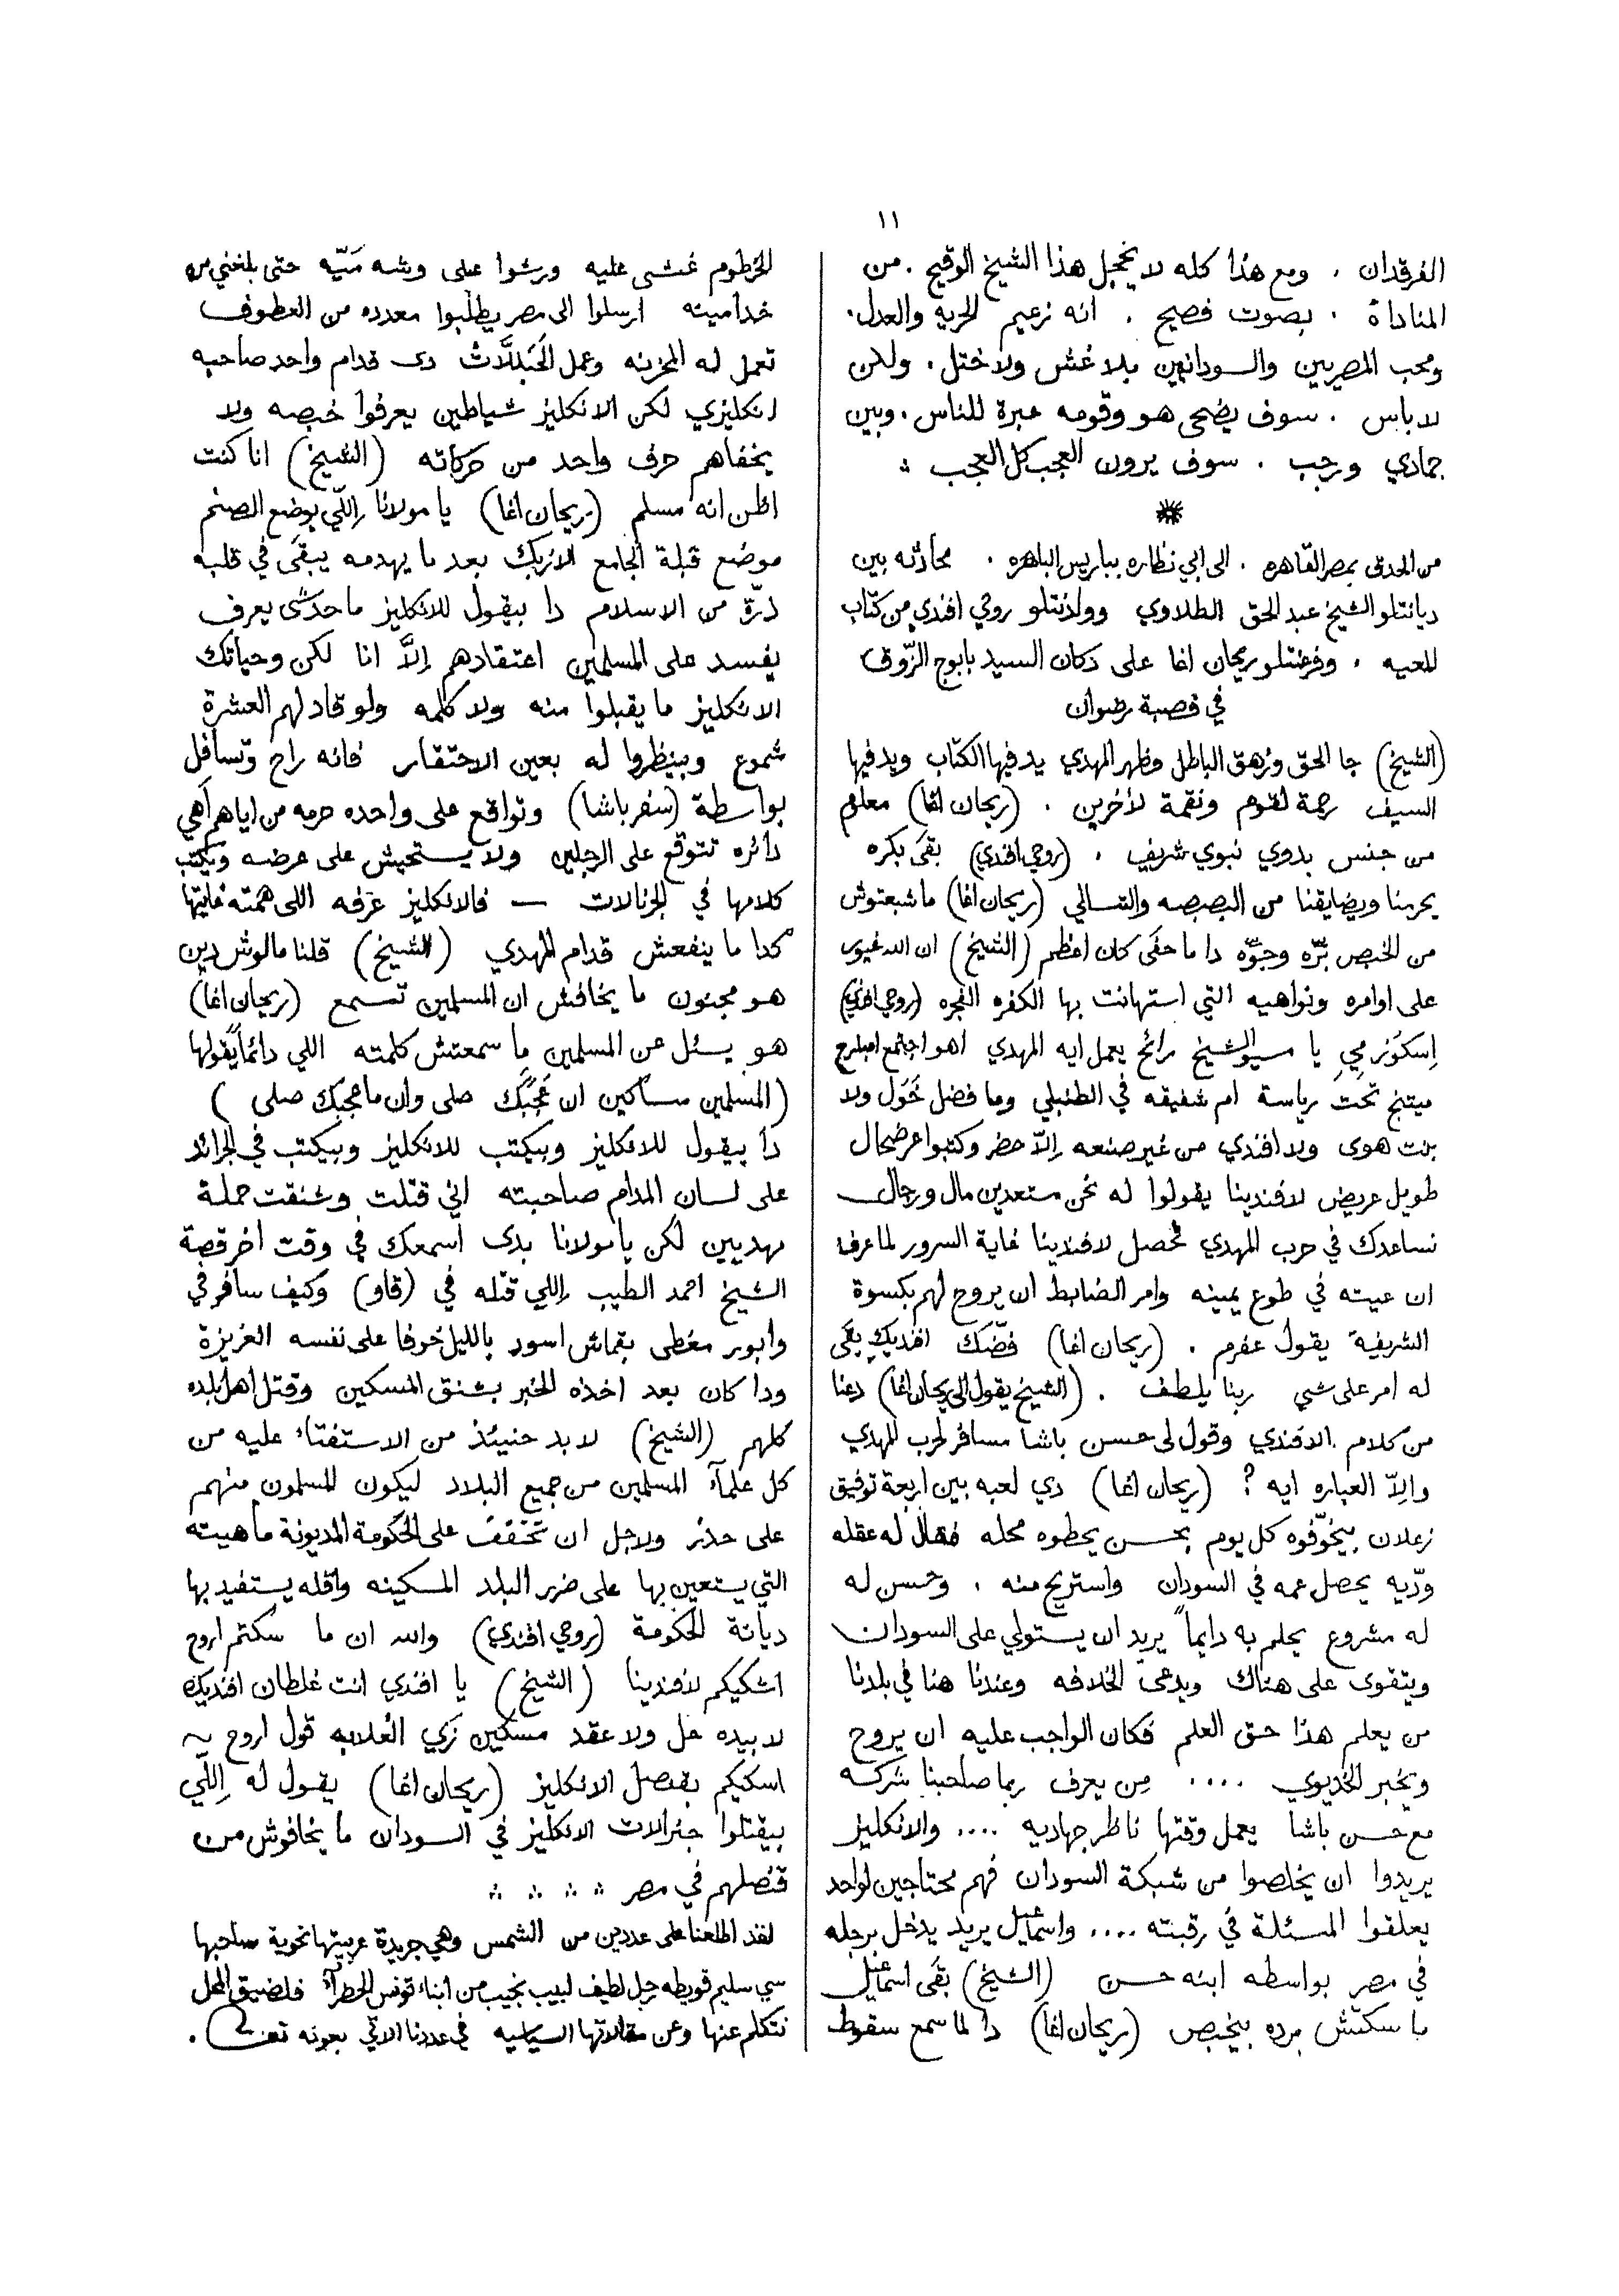 ١١
الفرقدان ، ومع هذا كله لا يخجل هذا الشيخ الوقيح . من
المناداة . بصوت فصيح . انه زعيم الحريه والعدل .
ومحب المصريين والسودانيين بلا غش ولا ختل . ولكن
لا باس . سوف يضحى هو وقومه عبرة للناس . وبين
جمادي ورجب . سوف يرون العجب كل العجب
من الحدق بمصر القاهره . الى ابي نظاره بباريس الباهره . محادثه بين
ديانتلو الشيخ عبد الحق الطلاوي وولدنتلو روحي افندي من كتّاب
المعيه . وفرضتلو ريحان اغا على دكان السيد بابوج الزّوق
في قصبة رضوان
(الشيخ) جا الحق وزهق الباطل وظهر المهدي يد فيها الكتاب ويد فيها
السيف رحمة لقوم ونقمة لآخرين . (ريحان اغا) معلوم
من جنس بدوي نبوي شريف . (روحي افندي) بقى بكره
يحرمنا ويضايقنا من البصبصه والتسالي (ريحان اغا) ما شبعتوش
من الخبص برّه وجوّه دا ما حقى كان اعظم (الشيخ) ان الله غيور
على اوامره ونواهيه التي استهانت بها الكفره الفجره (روحي افندي)
إسكوُزمِي يا مسيو الشيخ رائح يعمل ايه المهدي اهو اجتمع امبارح
ميتنج تحت رياسة ام شفيقه في الطنبلي وما فضل خَوَل ولا
بنت هوى ولا افندي من غير صنعه إلاّ حضر وكتبوا عرضحال
طويل عريض لافندينا يقولوا له نحن مستعدين مال ورجال
نساعدك في حرب المهدي فحصل لافندينا غاية السرور لما عرف
ان عيته في طوع يمينه وامر الضابط ان يروح لهم بكسوة
الشريفة يقول عفرم . (ريحان اغا) فضّك افنديك بقى
له امر على شي ربنا يلطف . (الشيخ يقول الى ريحان اغا) دعنا
من كلام الافندي وقول لى حسن باشا مسافر لحرب المهدي
والاّ العباره ايه ؟ (ريحان اغا) دي لعبه بين اربعة توفيق
زعلان بيخوّفوه كل يوم بحسن يحطوه محله فقال له عقله
ودّيه يحصل عمه في السودان واستريح منه . وحسن له
له مشروع يحلم به دايماً يريد ان يستولي على السودان
ويتقوى على هناك ويدعى الخلافه وعندنا هنا في بلدنا
من يعلم هذا حق العلم فكان الواجب عليه ان يروح
ويخبر الخديوي .... مِن يعرف ربما صاحبنا شركه
مع حسن باشا يعمل وقتها ناظر جهاديه .... والانكليز
يريدوا ان يخلصوا من شبكة السودان فهم محتاجين لواحد
يعلقوا المسئلة في رقبته .... واسماعيل يريد يدخل برجله
في مصر بواسطه ابنه حسن (الشيخ) بقى اسماعيل
ما سكتش برده بيخبص (ريحان اغا) دا لما سمع سقوط
الخرطوم غشى عليه ورشوا على وشه مَيّه حتى بلغني من
خداميته ارسلوا الى مصر يطلبوا معدده من العطوف
تعمل له المحزنه وعمل الحَبَلاَّت دى قدام واحد صاحبه
انكليزي لكن الانكليز شياطين يعرفوا خبصه ولا
يخفاهم حرف واحد من حركاته (الشيخ) انا كنت
اظن انه مسلم (ريحان اغا) يا مولانا إللّي يوضع الصنم
موضع قبلة الجامع الازبكي بعد ما يهدمه يبقى في قلبه
ذرّة من الاسلام دا بيقول للانكليز ما حدّش يعرف
يفسد على المسلمين اعتقادهم إلاَّ انا لكن وحياتك
الانكليز ما يقبلوا منه ولا كلمه ولو قاد لهم العشرة
شموع وبينظروا له بعين الاحتقار فانه راح وتسافل
بواسطة (سنفر باشا) وتواقع على واحده حرمه من اياهم اهي
دائره تتوقع على الرجلين ولا يستحيش على عرضه ويكتب
كلامها في الجرنالات — فالانكليز عرفه اللى همته غايتها
كدا ما ينفعش قدام المهدي (الشيخ) قلنا مالوش دين
هو مجنون ما يخافش ان المسلمين تسمع (ريحان اغا)
هو يسئل عن المسلمين ما سمعتش كلمته اللي دائماً يقولها
(المسلمين مساكين ان عَجَبَك صلى وان ما عجبك صلى )
دا بيقول للانكليز وبيكتب للانكليز وبيكتب في الجرائد
على لسان المدام صاحبته اني قتلت وشنقت حملة
مهديين لكن يا مولانا بدى اسمعك في وقت اخر قصة
الشيخ احمد الطيب إللي قتله في (قاو) وكيف سافر في
وابور مغطى بقماش اسود بالليل خوفا على نفسه العزيزة
ودا كان بعد اخذه الخبر بشنق المسكين وقتل اهل بلده
كلهم (الشيخ) لا بد حنيئذ من الاستفتاء عليه من
كل علمآء المسلمين من جميع البلاد ليكون المسلمون منهم
على حذر ولاجل ان تخفف على الحكومة المديونة ماهيته
التي يستعين بها على ضرر البلد المسكينه واقله يستفيد بها
ديانة الحكومة (روحي افندي) والله ان ما سكتم اروح
اشكيكم لافندينا (الشيخ) يا افندي انت غلطان افنديك
لا بيده حل ولا عقد مسكين زي الغلابه قول اروح
اسكيكم بقنصل الانكليز (ريحان اغا) يقول له إللّي
بيقتلوا جنرالات الانكليز في السودان ما يخافوش من
قنصلهم في مصر
لقد اطلعنا على عددين من الشمس وهي جريدة عربيتها نحوية صاحبها
سي سليم قويطه رجل لطيف لبيب نجيب من ابناء تونس الخضرآء فلضيق المحل
نتكلم عنها وعن مقالاتها السياسيه في عددنا الاتي بعونه تعالى .